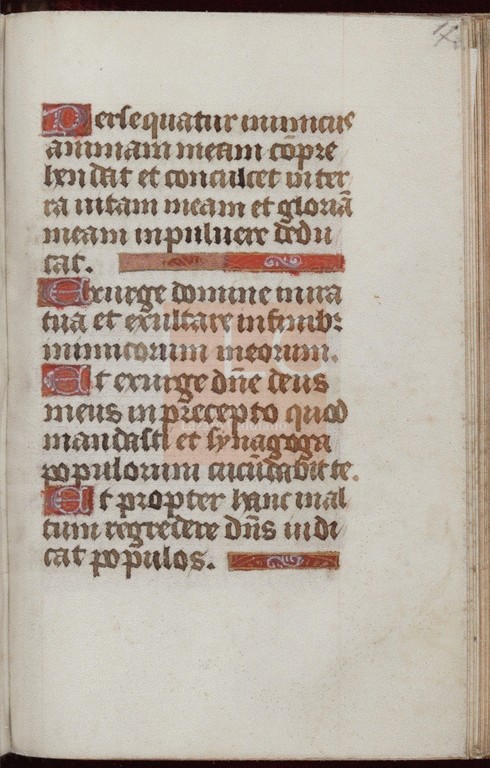 Persequatur inimicus
animam meam cōpre
hendat et conculcet in ter
ra uitam meam et gloriā
meam in puluere dedu
cat.
Exurge domine in ira
tua et exaltare in finibꝫ
inimicorum meorum.
Et exurge dn̄e deus
meus in precepto quod
mandasti et synagoga
populorum circūdabit te.
Et propter hanc in al
tum regredere dn̄s iudi
cat populos.